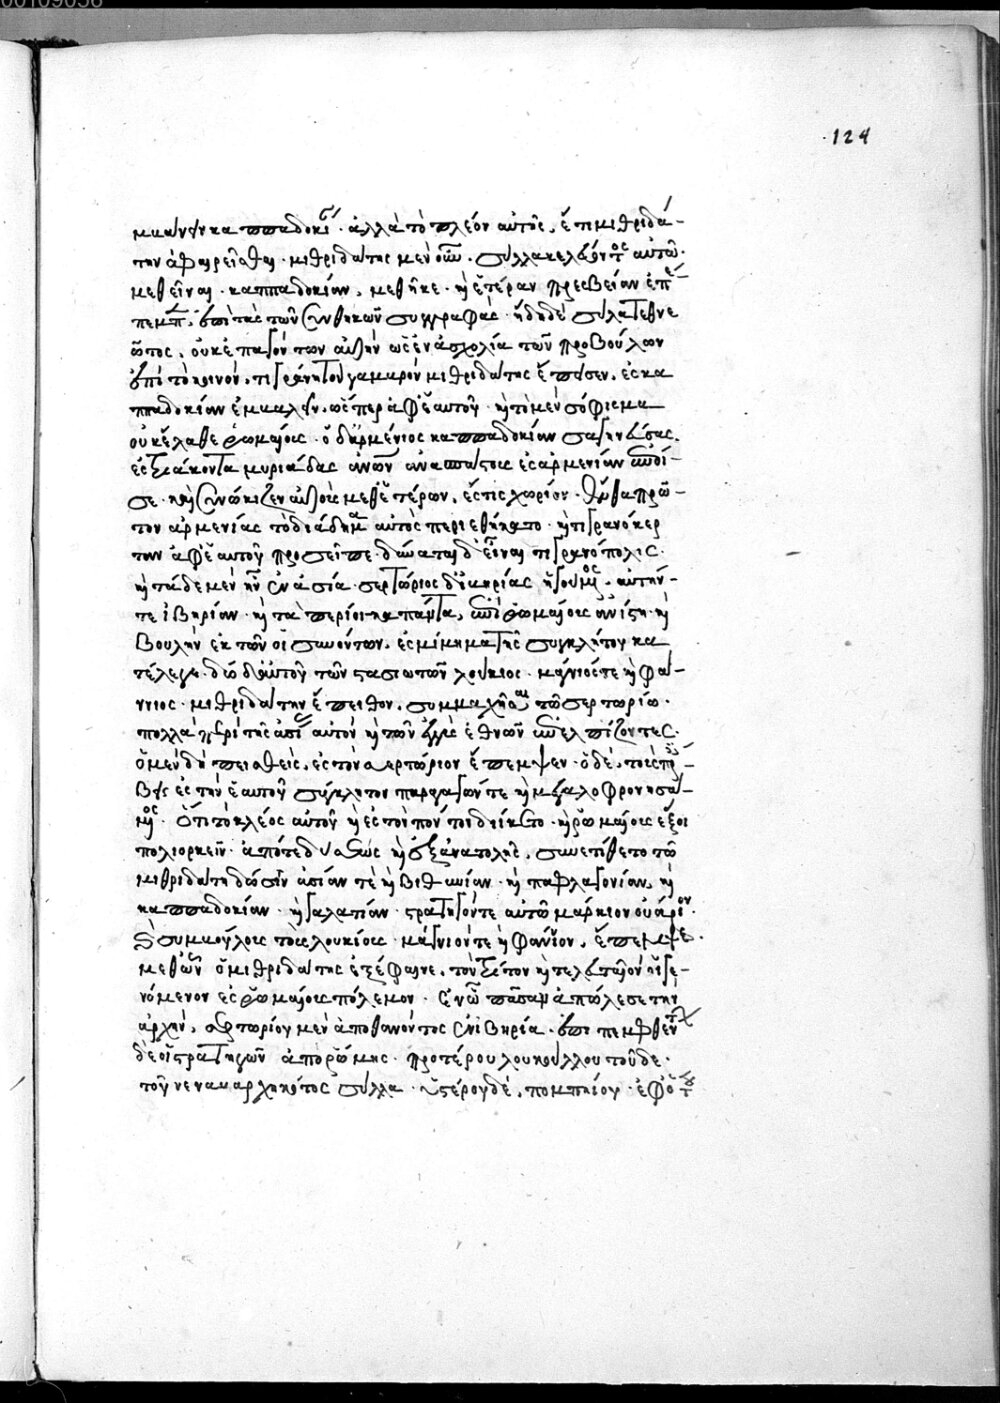 00109058
124
μιλύειν καππαδοκί · ἀλλὰ τὸ πλέον αὐτῆς, ἔτι μιθριδά-
την ἀφαιρεῖσθαι · μιθριδάτης μὲν οὖν · σύλλα κελεύοντος αὐτῶ ·
μεθεῖναι · καππαδοκίαν, μεθῆκε · καὶ ἑτέραν πρεσβείαν ἐπέ-
πεμπ, ἐπὶ τὰς τῶν συνθηκῶν συγγραφάς · ἤδη δὲ σύλα τεθνε
ῶτος, οὐκ ἐπαγόντων αὐτὴν ὡς ἐν ἀσχολία τῶν προβούλων
ἐπὶ τὸ κοινόν, τιγράνη τὸν γαμβρὸν μιθριδάτης ἔπεισεν, ἐς κα
ππαδοκίαν ἐμβαλεῖν, ὥσπερ ἀφ' ἑαυτοῦ · καὶ τὸ μὲν σόφισμα
οὐκ ἔλαθε ῥωμαίους · ὁ δ' ἀρμένιος καππαδοκίαν σαγηνεύσας,
ἐς τριάκοντα μυριάδας ἀνῶν ἀνασπάστους ἐς ἀρμενίαν ἐποί-
σε · καὶ συνώκιζεν αὐτοὺς μεθ' ἑτέρων, ἔς τι χωρίον · ἔνθα πρῶ-
τον ἀρμενίας τὸ διάδημα αὐτὸς περιεθήκατο · καὶ τιγρανόκερ
ταν ἀφ' ἑαυτοῦ προσεῖπε · δύναται δ' εἶναι τιγρανόπολις ·
καὶ τάδε μὲν ἦν ἐν ἀσία · σερτώριος δ' ἰβηρίας ἡγούμενος · αὐτήν-
τε ἰβηρίαν · καὶ τὰ περίοικα πάντα, ἐπὶ ῥωμαίους ἀνίστη · καὶ
βουλὴν ἐκ τῶν οἱ συνόντων, ἐς μίμημα τῆς συγκλήτου κα
τέλεγε · δύο δ' αὐτοῦ τῶν στασιωτῶν λούκιος · μάγνιός τε καὶ φάν-
νιος · μιθριδάτην ἔπειθον, συμμαχῆσαι τῶ σερτωρίω ·
πολλὰ περὶ τῆς ἀσίας αὐτὸν καὶ τῶν ἐγγὺς ἐθνῶν ἐπελπίζοντες ·
ὁ μὲν δὴ πεισθεὶς, ἐς τὸν σερτώριον ἔπεμψεν · ὁ δὲ, τοὺς πρέσ-
βεις ἐς τὴν ἑαυτοῦ σύγκλητον παραγαγών τε καὶ μεγαλοφρονησά-
μενος · ὅτι τὸ κλέος αὐτοῦ καὶ ἐς τὸν πόντον διίκετο · καὶ ῥωμαίους ἕξοι
πολιορκεῖν · ἀπό τε δύσεως καὶ ἐξ ἀνατολῆς, συνετίθετο τῶ
μιθριδάτη δώσειν ἀσίαν τὲ καὶ βιθυνίαν · καὶ παφλαγονίαν, καὶ
καππαδοκίαν · καὶ γαλατίαν · στρατηγόν τε αὐτῶ μάρκιον οὐάριον ·
καὶ συμβούλους τοὺς λουκίους · μάγνιόν τε καὶ φάννιον, ἔπεμψε ·
μεθ' ὧν ὁ μιθριδάτης ἐξέφαινε, τὸν τρίτον καὶ τελευταῖον οἱ γε-
νόμενον ἐς ῥωμαίους πόλεμον · ἐν ὧ πᾶσαν ἀπώλεσε τὴν
ἀρχήν, σερτωρίου μὲν ἀποθανόντος ἐν ἰβηρία · ἐπιπεμφθέντων
δέ οἱ στρατηγῶν ἀπὸ ῥώμης · προτέρου λουκούλλου τοῦδε ·
τοῦ νεναυαρχηκότος σύλλα · ὑστέρου δὲ, πομπηίου · ἐφ' ὅτου